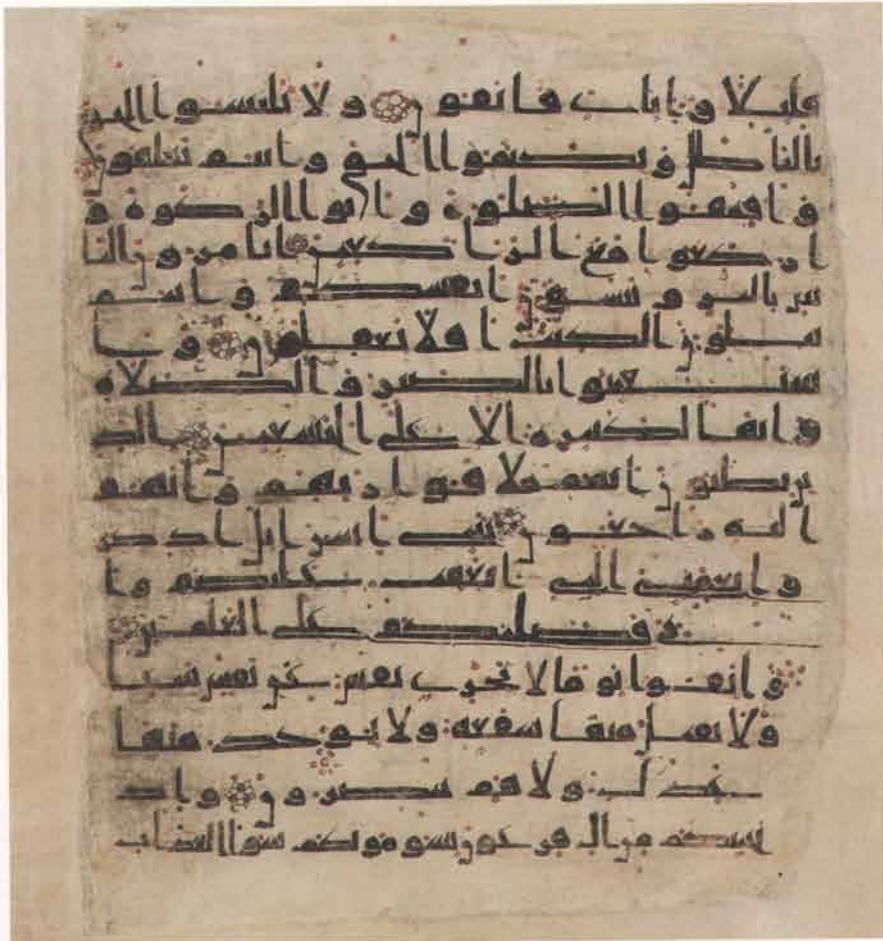 قليلا و اياي فاتقون و لا تلبسوا الحق
بالباطل و تكتموا الحق و انتم تعلمون
و اقيموا الصلوة و اتوا الزكوة و
اركعوا مع الراكعين اتامرون النا
س بالبر و تنسون انفسكم و انتم
تتلون الكتب افلا تعقلون و ا
ستعينوا بالصبر و الصلاة
و انها لكبيرة الا على الخشعين الذ
ين يظنون انهم ملاقوا ربهم و انهم
اليه راجعون يبني اسرايل اذكر
وا نعمتي التي انعمت عليكم و ا
ني فضلتكم على العلمين
و اتقوا يوما لا تجزي نفس عن نفس شيا
و لا يقبل منها شفعة و لا يوخذ منها
عدل و لا هم ينصرون و اذ
نجينكم من ال فرعون يسومونكم سوا العذاب